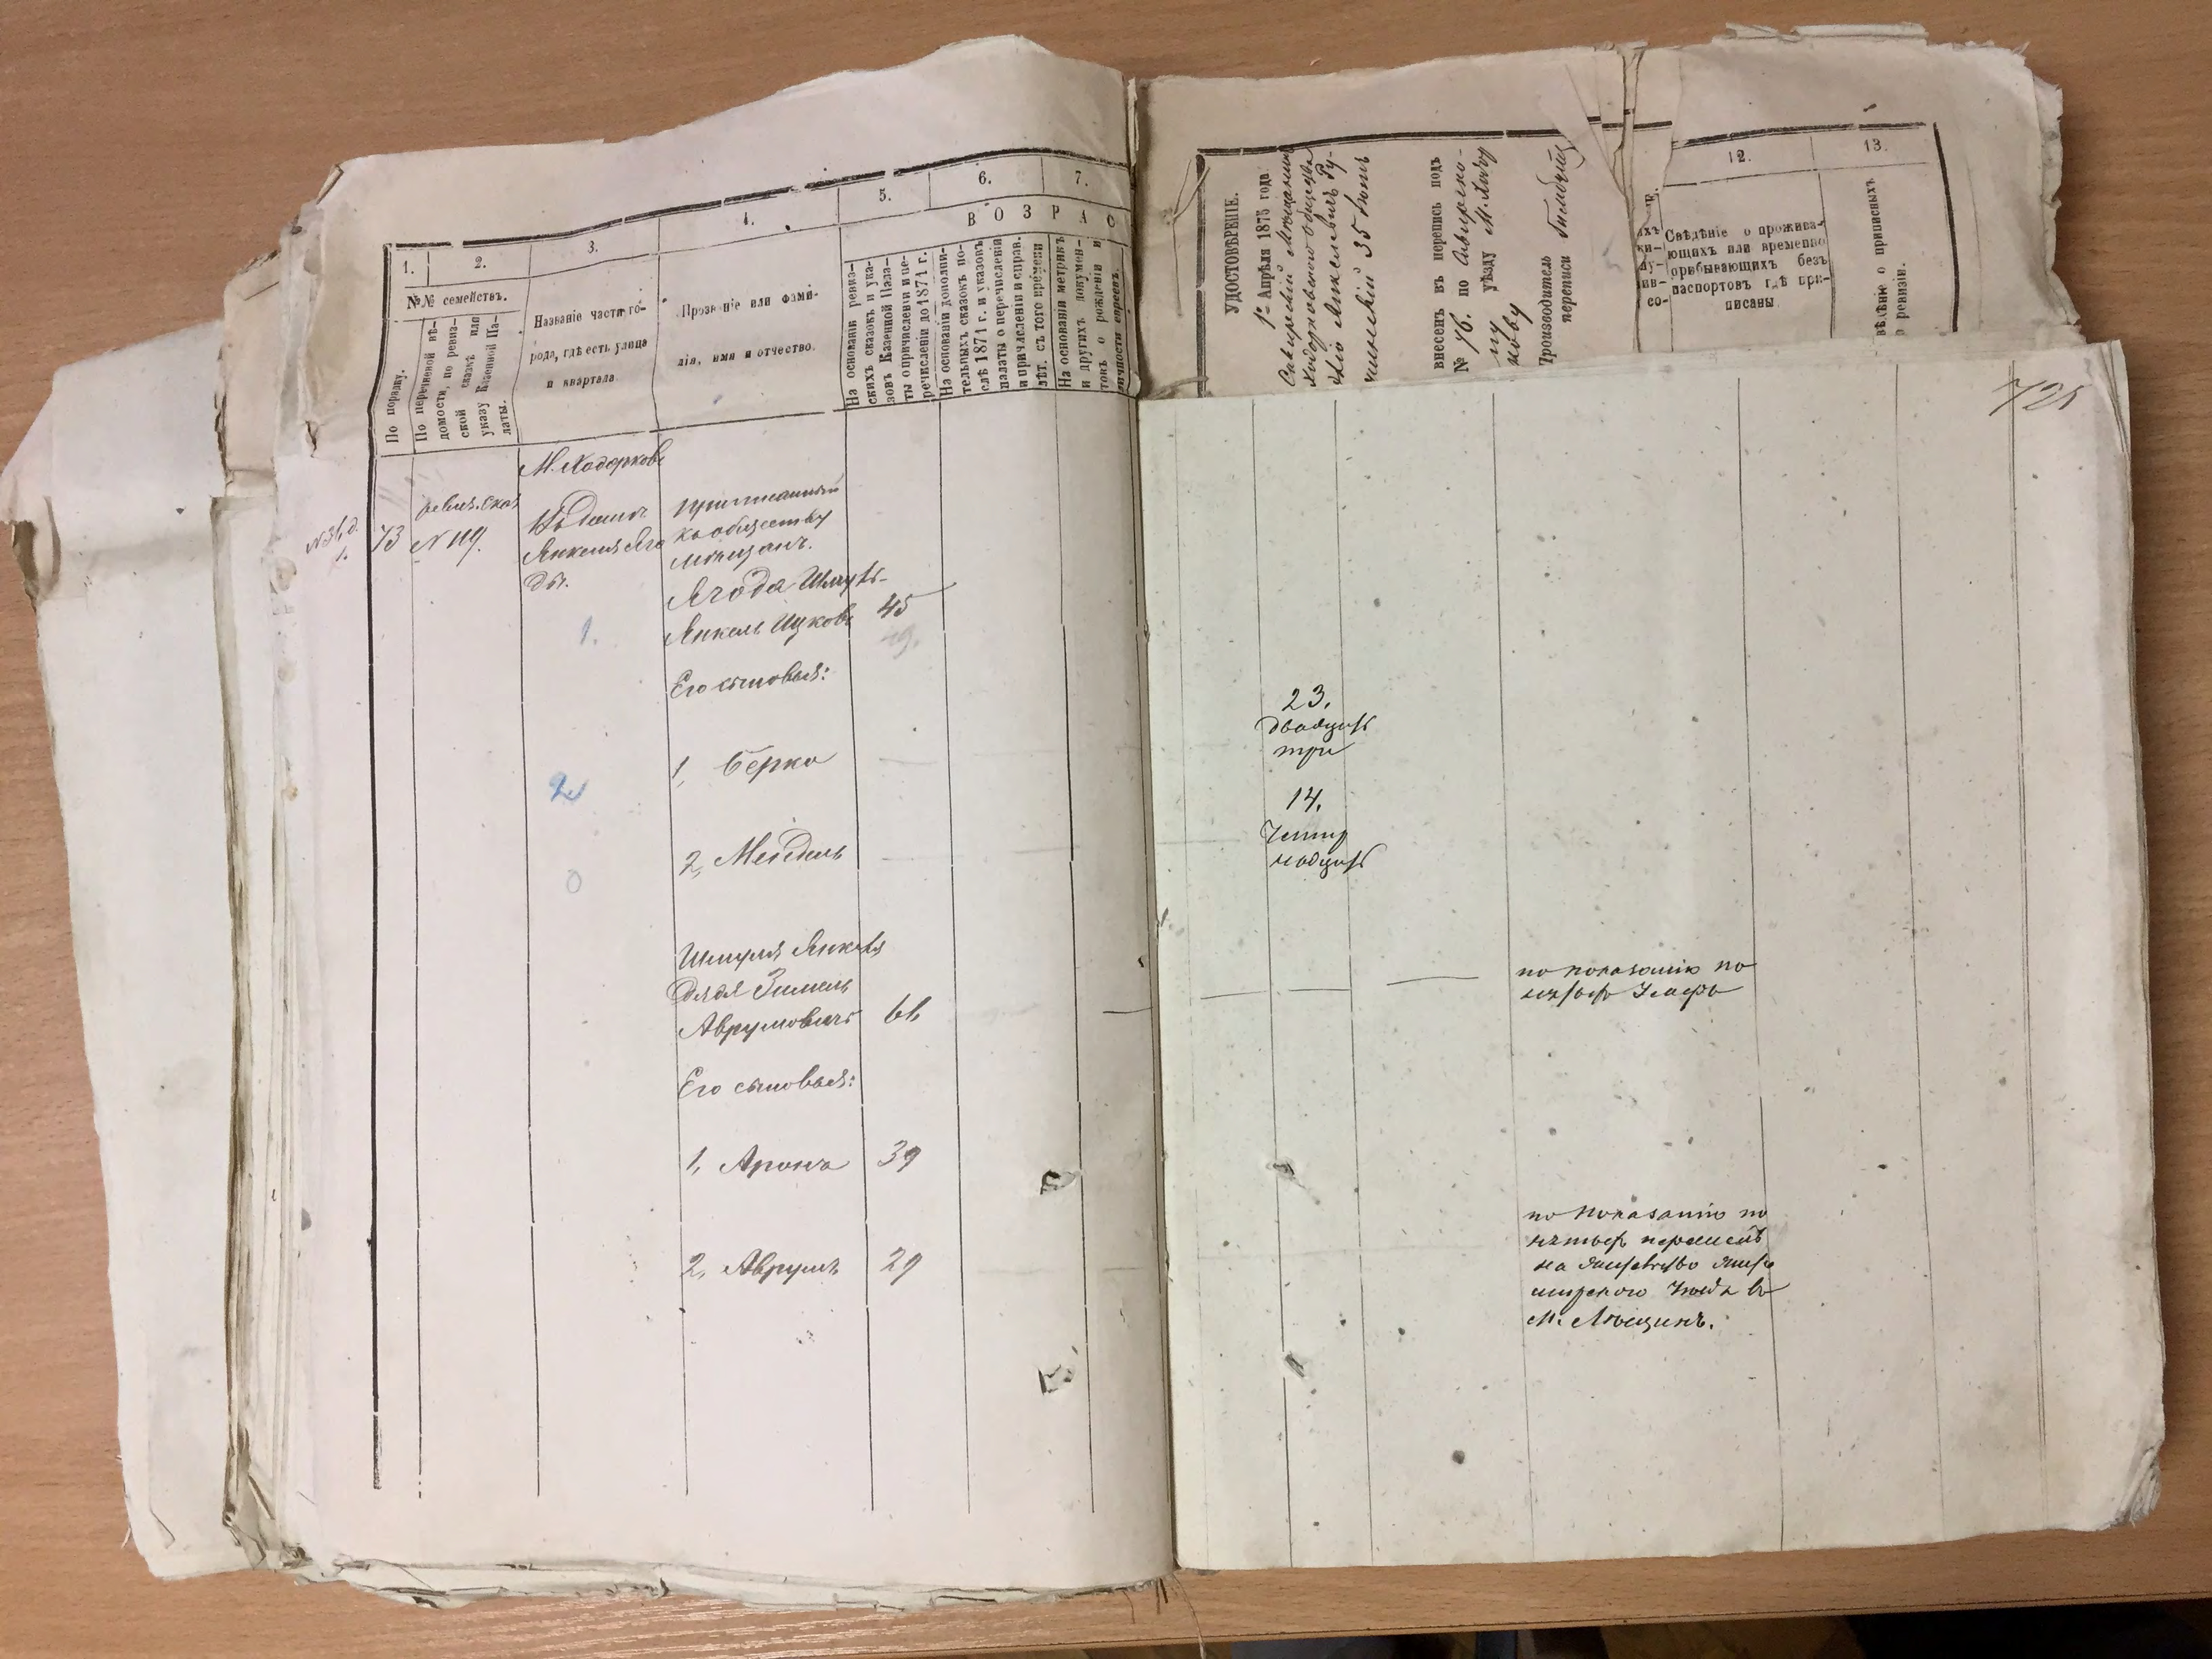 1.
2.
3.
4.
5.
6.
7.
№№ семействъ.
В О З Р А С
По порядку.
По перечневой вѣ-
домости, по ревиз-
ской сказкѣ или
указу Казенной Па-
латы.
Названіе части го-
рода, гдѣ есть улица
и квартала
Прозваніе или фами-
лія, имя и отчество.
На основаніи ревиз-
скихъ сказокъ и ука-
зовъ Казенной Пала-
ты о причисленіи и пе-
речисленіи до 1874 г.
На основаніи дополни-
тельныхъ сказокъ по-
слѣ 1874 г. и указокъ
палаты о перечисленіи
и причисленіи и справ.
лѣт. съ того времени
На основаніи метрикъ
и другихъ докумен-
товъ о рожденіи и
личности евреевъ.
М. Ходорковъ
73
ревиз. сказ
№ 119.
Въ домѣ
Янкеля Яго
ды.
приписанный
къ обществу
мѣщанъ.
Ягода Шмуль-
1.
Янкель Ицковъ
45
Его сыновья:
1, Берко
2
2, Мендель
0
Шмуля Янкеля
дядя Зимель
Аврумовичъ
66
Его сыновья:
1, Аронъ
39
2, Аврумъ
29
УДОСТОВѢРЕНІЕ.
1го Апрѣля 1875 года
Сквирскій мѣщанинъ
Ходорковскаго общества
35 лѣтъ
внесенъ въ перепись подъ
№ 76. по Сквирско-
му уѣзду М. Ходор
кову
Производитель
переписи
12.
13.
Свѣдѣніе о прожива-
ющихъ или временно
прибывающихъ безъ
паспортовъ гдѣ при-
писаны
вѣдѣніе о приписныхъ
о ревизіи.
725
23.
двадцать
три
14.
Четыр
надцать
по показанію по
нятыхъ умеръ
по показанію по
нятыхъ
на жительство
уѣзда въ
м.